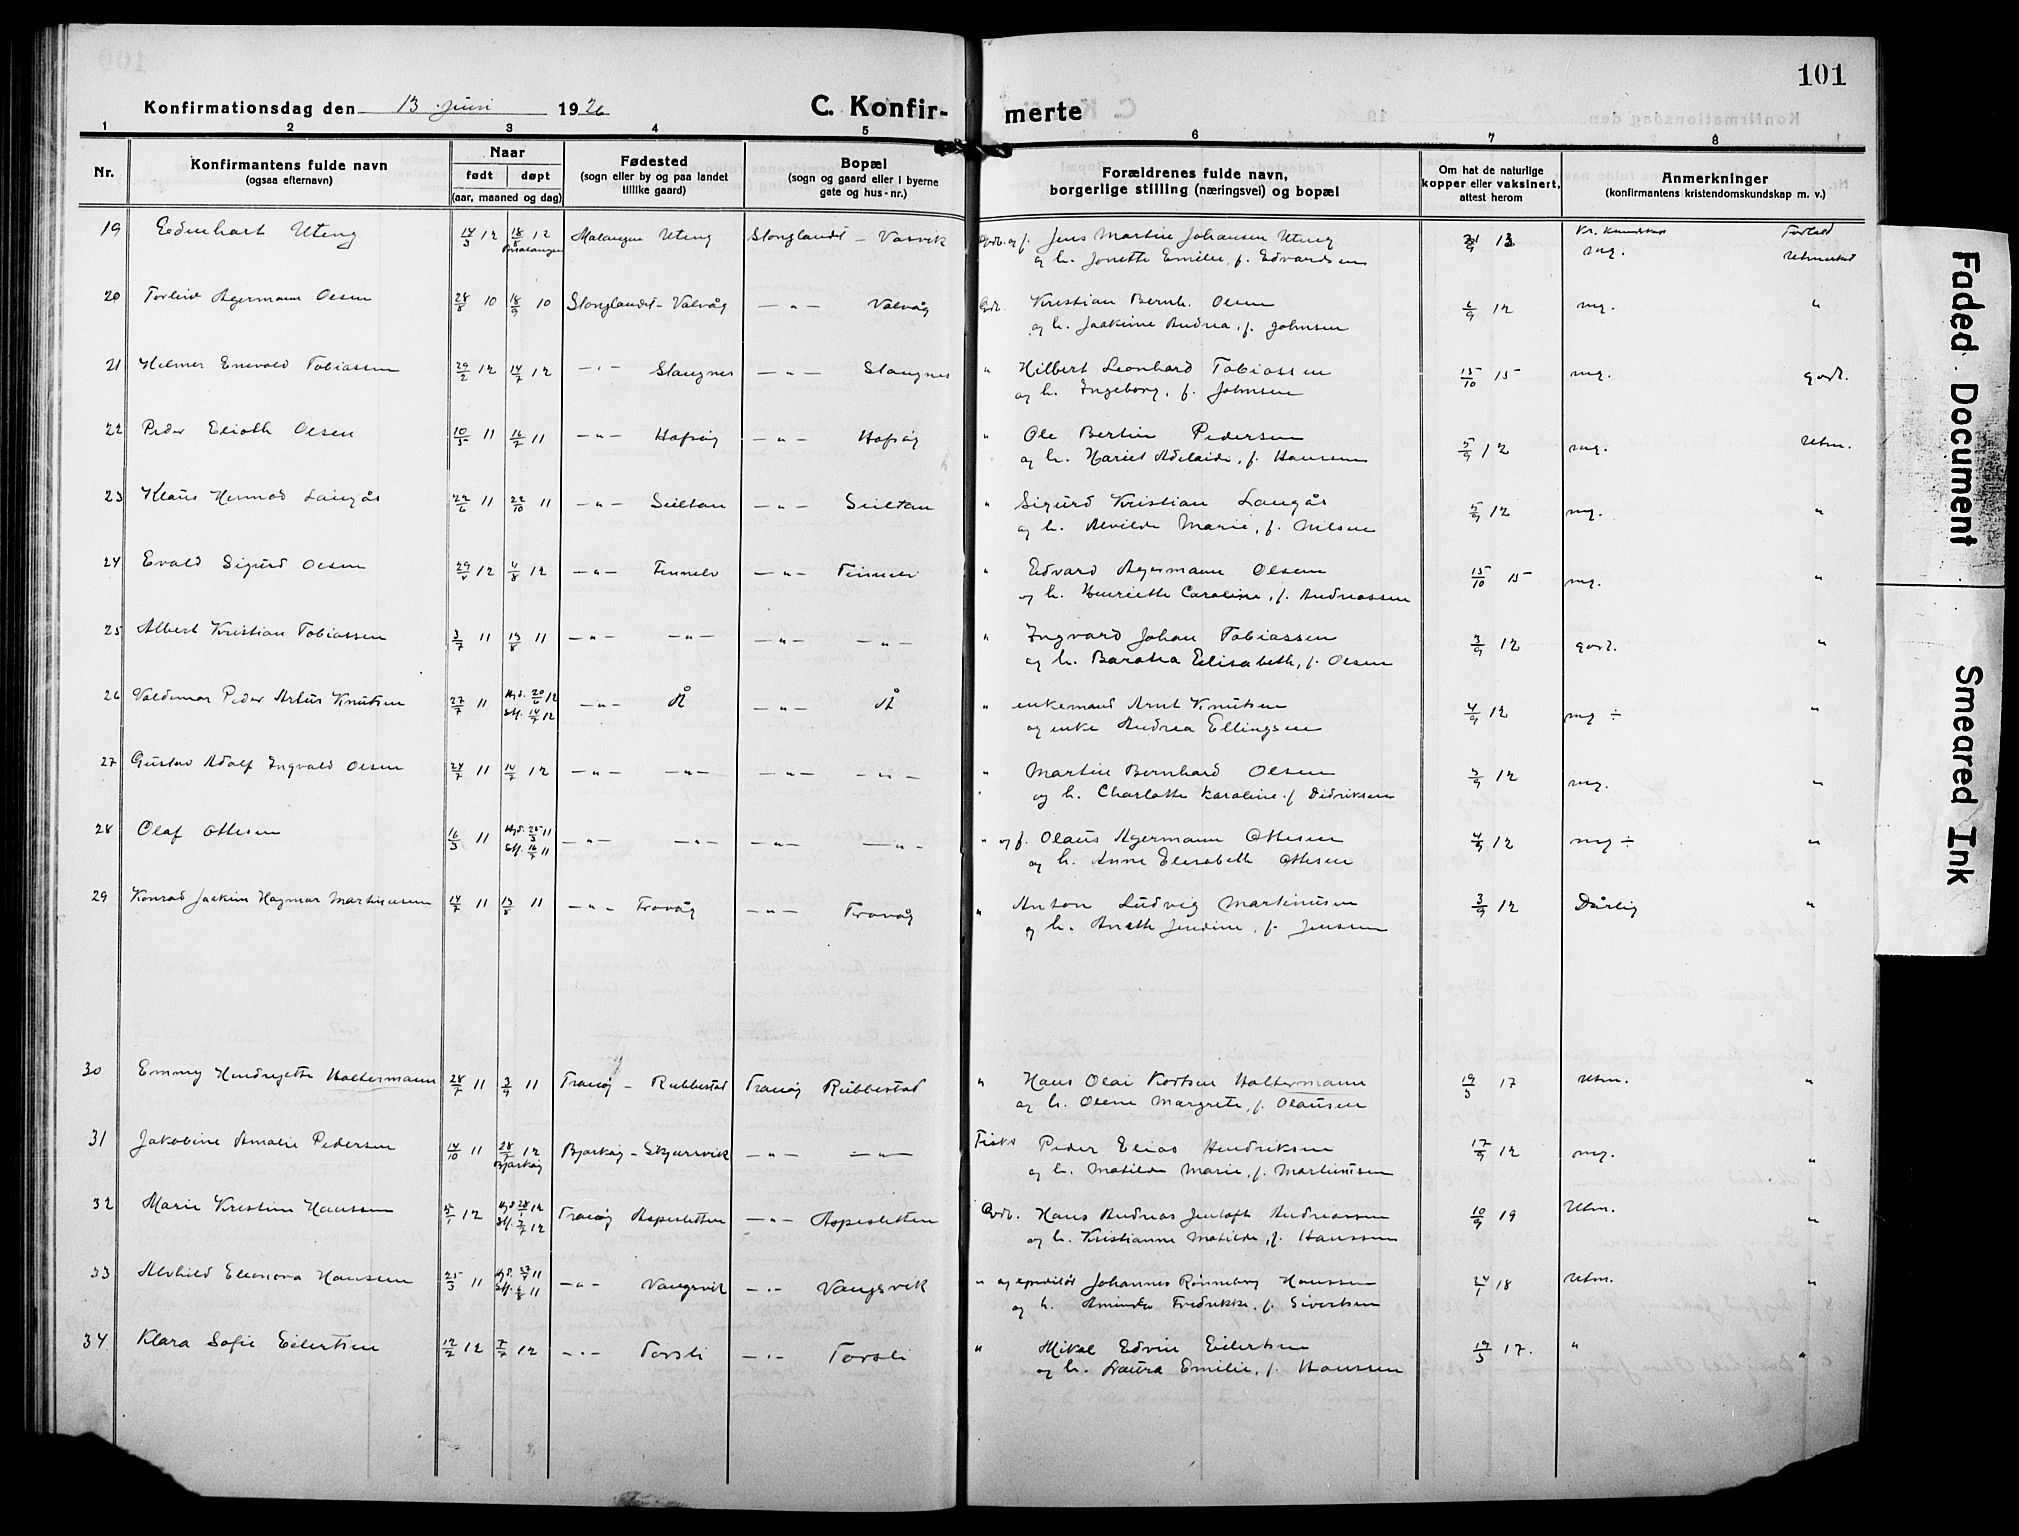 101
Konfirmationsdag den 13 juni 1926
C. Konfirmerte
1 2 3 4 5 6 7 8
Nr.
Konfirmantens fulde navn
(ogsaa efternavn)
Naar
født døpt
(aar, maaned og dag)
Fødested
(sogn eller by og paa landet
tillike gaard)
Bopæl
(sogn og gaard eller i byerne
gate og hus-nr.)
Forældrenes fulde navn,
borgerlige stilling (næringsvei) og bopæl
Om hat de naturlige
kopper eller vaksinert,
attest herom
Anmerkninger
(konfirmantens kristendomskundskap m. v.)
19 Edenhart Uteng 14/3 12 18/8 12 Malangen Uteng Stonglandet - Vasvik Gdb. og f. Jens Martin Johansen Uteng 13 Kr. kundskap Forhold
Malangen og h. Jonette Emilie, f. Edvardsen mg. Utmerket
20 Torleiv Agermann Olsen 28/8 10 18/9 10 Stonglandet - Valvåg — " — Valvåg Gdb. Kristian Bernh. Olsen 6/9 12 mg. "
og h. Jaakine Andrea, f. Johnsen
21 Hilmer Enevold Tobiassen 29/2 12 14/7 12 — " — Stangnes — " — Stangnes " Hilbert Leonhard Tobiassen 15/10 15 mg. godt.
og h. Ingeborg, f. Johnsen
22 Peder Elioth Olsen 10/5 11 16/7 11 — " — Hofsøy — " — Hofsøy " Ole Bertin Pedersen 5/9 12 mg. Utm.
og h. Hariet Adelaide, f. Hanssen
23 Klaus Hermod Langås 22/6 11 22/10 11 — " — Seiltan — " — Seiltan " Sigurd Kristian Langås 5/9 12 mg. "
og h. Alvilde Marie, f. Nilsen
24 Evald Sigurd Olsen 12 4/8 12 — " — Tennelv — " — Tennelv " Edvard Agermann Olsen 15/10 15 mg. "
og h. Henriette Caroline, f. Andreassen
25 Albert Kristian Tobiassen 3/7 11 13/8 11 — " — — " — — " — — " — " Ingvard Johan Tobiassen 3/9 12 godt. "
og h. Baroha Elisabeth, f. Olsen
26 Valdemar Peder Artur Knutsen 27/7 11 Hjd. 20/6 12 — " — Å — " — Å " enkemand Arnt Knutsen 4/9 12 mg ÷ "
Stf. 14/7 12 og enke Andrea Ellingsen
27 Gustav Adolf Ingvald Olsen 24/7 11 14/7 12 — " — — " — — " — — " — " Martin Bernhard Olsen 3/9 12 mg. "
og h. Charlotte Karoline f. Didriksen
28 Olaf Ottesen 16/3 11 Hjd. 25/3 11 — " — — " — — " — — " — " og f. Olaus Agermann Ottesen 4/9 12 mg ÷ "
Stf. 16/7 11 og h. Anne Elisabeth Ottesen
29 Konrad Joakim Hagmar Martinusen 14/7 11 13/8 11 — " — Trovåg — " — Trovåg " Anton Ludvig Martinusen 3/9 12 Dårlig "
og h. Anette Jendine, f. Jensen
30 Emmy Hendrijette Holtermann 28/7 11 3/9 11 Tranøy - Rubbestad Tranøy Rubbestad " Hans Olai Kortsen Holtermann 19/3 17 Utm. "
og h. Olene Margrete, f. Olausen
31 Jakobine Amalie Pedersen 14/10 11 28/7 12 Bjarkøy - Skjærvik — " — — " — Fisk. Peder Elias Hendriksen 17/9 12 mg. "
Bjarkøy og h. Matilde Marie, f. Martinusen
32 Marie Kristine Hanssen 5/1 12 Hjd. 28/1 12 Tranøy Aspesletten — " — Aspesletten Gdb. Hans Andreas Jentoft Andreassen 10/9 19 Utm. "
Stf. 7/7 12 og h. Kristianne Matilde, f. Hanssen
33 Alvhild Eleonora Hansen 25/3 11 Hjd. 11 — " — Vangsvik — " — Vangsvik " og expeditør Johannes Rønneberg Hanssen 24/1 18 Utm. "
Stf. 6/8 11 og h. Aminda Fredrikke, f. Sivertsen
34 Klara Sofie Eilertsen 12/2 12 7/7 12 — " — Torsli — " — Torsli " Mikal Edvin Eilertsen 19/3 17. " "
og h. Laura Emilie, f. Hanssen
Faded Document
Smeared Ink